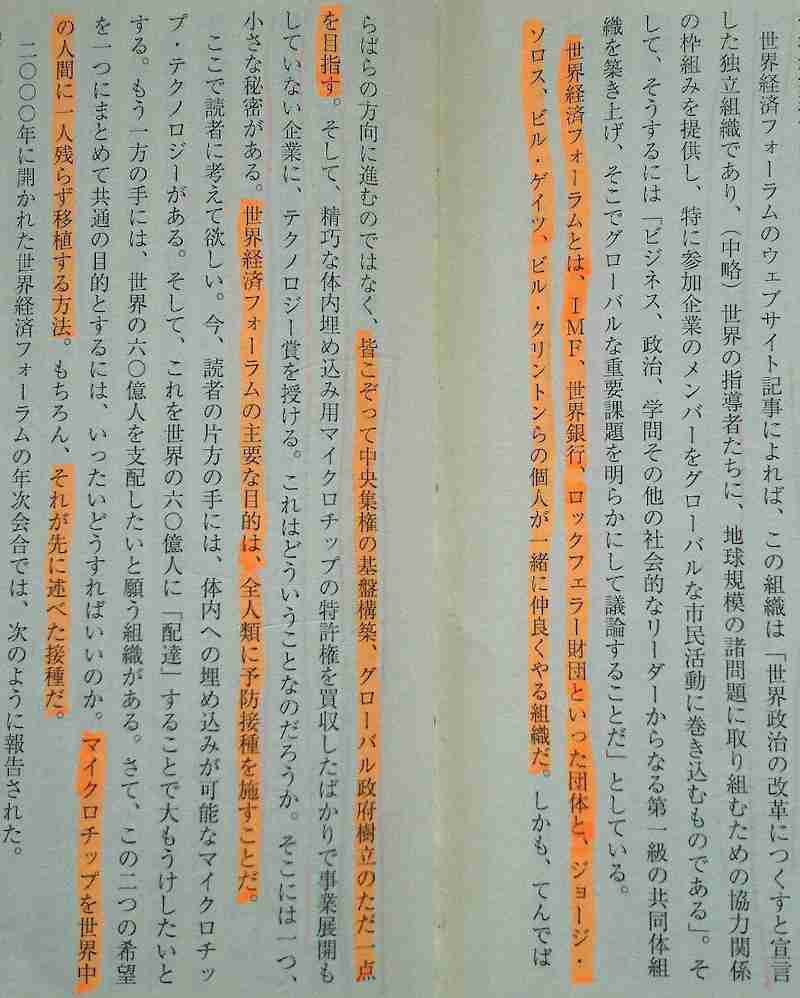 世界経済フォーラムのウェブサイト記事によれば、この組織は「世界政治の改革につくすと宣言
した独立組織であり、（中略）世界の指導者たちに、地球規模の諸問題に取り組むための協力関係
の枠組みを提供し、特に参加企業のメンバーをグローバルな市民活動に巻き込むものである」。そ
して、そうするには「ビジネス、政治、学問その他の社会的なリーダーからなる第一級の共同体組
織を築き上げ、そこでグローバルな重要課題を明らかにして議論することだ」としている。
世界経済フォーラムとは、ＩＭＦ、世界銀行、ロックフェラー財団といった団体と、ジョージ・
ソロス、ビル・ゲイツ、ビル・クリントンらの個人が一緒に仲良くやる組織だ。しかも、てんでば
らばらの方向に進むのではなく、皆こぞって中央集権の基盤構築、グローバル政府樹立のただ一点
を目指す。そして、精巧な体内埋め込み用マイクロチップの特許権を買収したばかりで事業展開も
していない企業に、テクノロジー賞を授ける。これはどういうことなのだろうか。そこには一つ、
小さな秘密がある。世界経済フォーラムの主要な目的は、全人類に予防接種を施すことだ。
ここで読者に考えて欲しい。今、読者の片方の手には、体内への埋め込みが可能なマイクロチッ
プ・テクノロジーがある。そして、これを世界の六〇億人に「配達」することで大もうけしたいと
する。もう一方の手には、世界の六〇億人を支配したいと願う組織がある。さて、この二つの希望
を一つにまとめて共通の目的とするには、いったいどうすればいいのか。マイクロチップを世界中
の人間に一人残らず移植する方法。もちろん、それが先に述べた接種だ。
二〇〇〇年に開かれた世界経済フォーラムの年次会合では、次のように報告された。